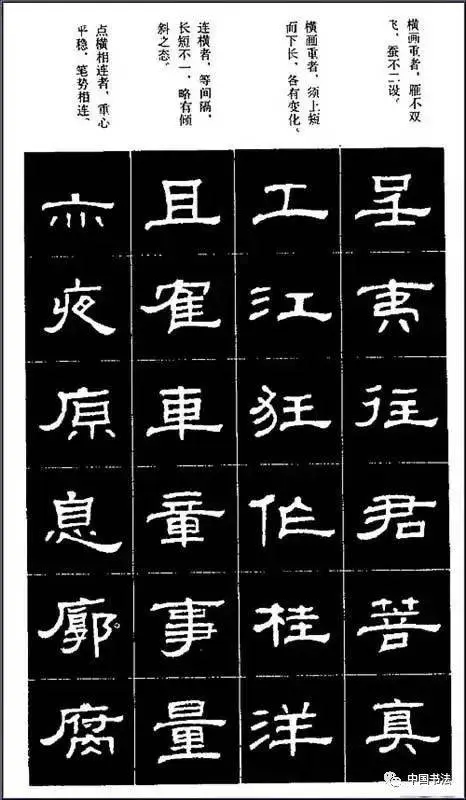 横画重者，雁不双
飞，蚕不二设。
横画重者，须上短
而下长，各有变化。
连横者，等间隔，
长短不一，略有倾
斜之态。
点横相连者，重心
平稳，笔势相连。
呈夷往君菩真
工江狂作桂洋
且寉車童事量
亦夜原息廓腐
中国书法